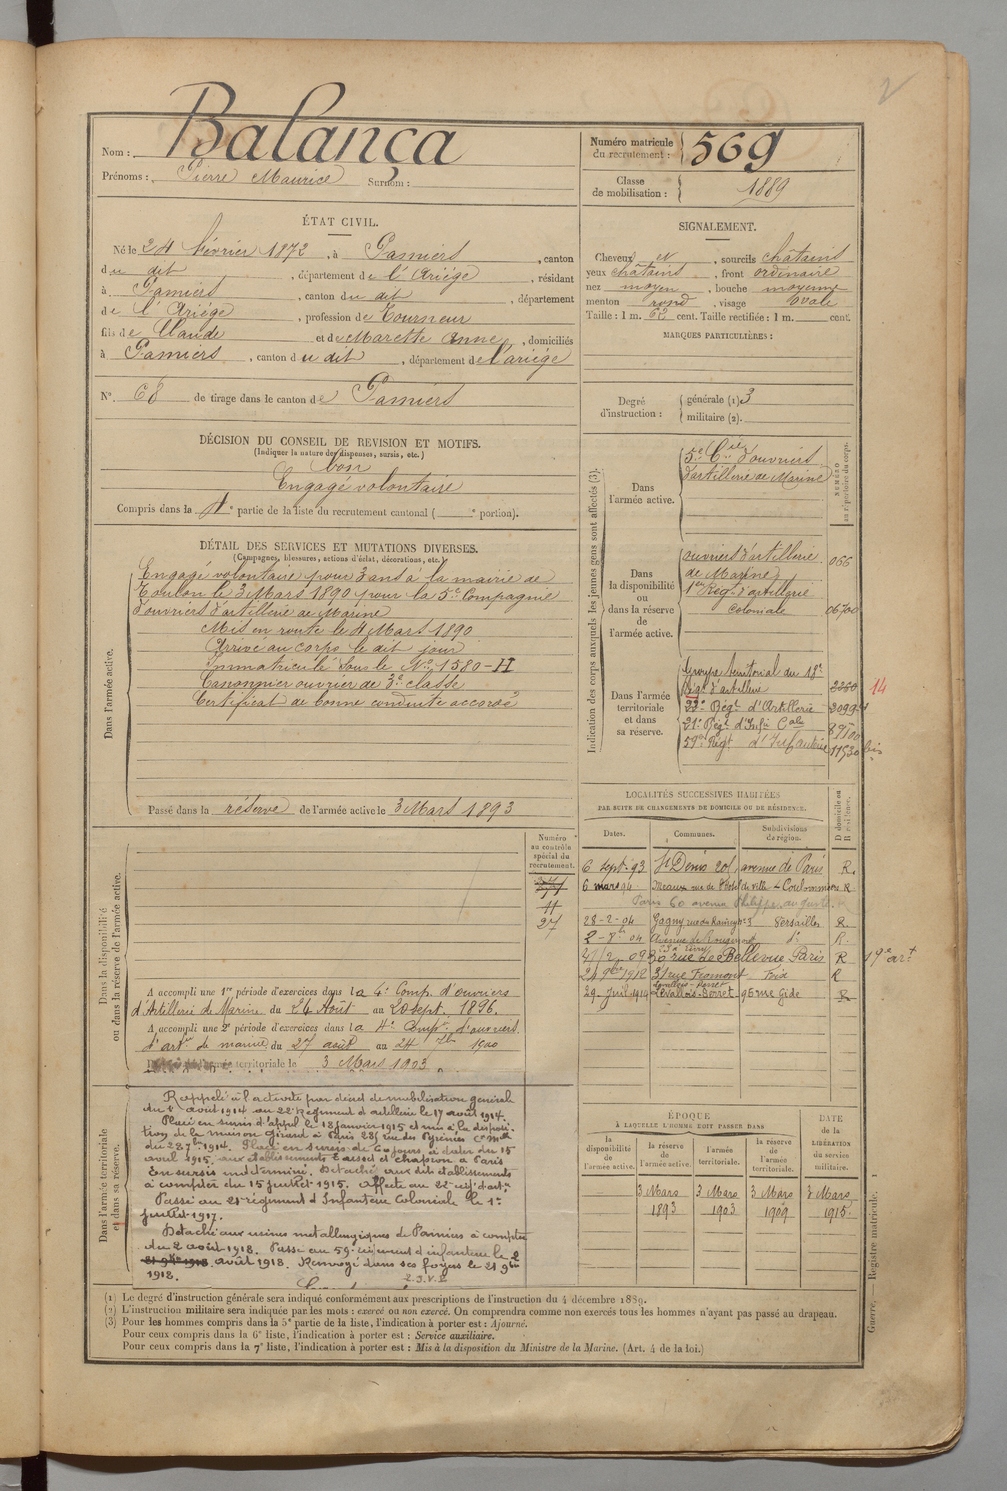 2
Nom : Balança
Prénoms : Pierre Maurice Surnom :
Numéro matricule du recrutement : 569
Classe de mobilisation : 1889
ÉTAT CIVIL.
Né le 24 février 1872, à Pamiers, canton
du dit, département de l'Ariége, résidant
à Pamiers, canton du dit, département
de l'Ariége, profession de Tourneur
fils de Claude et de Marette Anne, domiciliés
à Pamiers, canton du dit, département de l'ariége
N° 68 de tirage dans le canton de Pamiers
SIGNALEMENT.
Cheveux et, sourcils châtains
yeux châtains, front ordinaire
nez moyen, bouche moyenne
menton rond, visage ovale
Taille : 1 m. 62 cent. Taille rectifiée : 1 m. cent.
MARQUES PARTICULIÈRES :
Degré d'instruction : générale (1) 3
militaire (2).
DÉCISION DU CONSEIL DE REVISION ET MOTIFS.
(Indiquer la nature des dispenses, sursis, etc.)
bon
Engagé volontaire
Compris dans la 4e partie de la liste du recrutement cantonal ( e portion).
DÉTAIL DES SERVICES ET MUTATIONS DIVERSES.
(Campagnes, blessures, actions d'éclat, décorations, etc.)
Dans l'armée active.
Engagé volontaire pour 3 ans à la mairie de
Toulon le 3 Mars 1890 pour la 5e Compagnie
d'ouvriers d'artillerie de Marine
Mis en route le 4 Mars 1890
Arrivé au corps le dit jour
Immatriculé sous le No 1580-II
Canonnier ouvrier de 3e classe
Certificat de bonne conduite accordé
Passé dans la réserve de l'armée active le 3 Mars 1893
Indication des corps auxquels les jeunes gens sont affectés (3).
NUMÉRO au répertoire du corps.
Dans l'armée active.
5e Cie d'ouvriers
d'artillerie de Marine
Dans la disponibilité ou dans la réserve de l'armée active.
ouvriers d'artillerie 066
de Marine
1er Régt d'artillerie
coloniale 06700
Dans l'armée territoriale et dans sa réserve.
Groupe territorial du 18e
Régt d'artillerie 2260 14
22e Régt d'Artillerie 2099
21e Régt d'Infie Cale
59e Régt d'Infanterie 11530 bis
LOCALITÉS SUCCESSIVES HABITÉES
PAR SUITE DE CHANGEMENTS DE DOMICILE OU DE RÉSIDENCE.
Dates. Communes. Subdivisions de région. D domicile ou R résidence.
6 sept. 93 St Denis 201, avenue de Paris R.
6 mars 94 Meaux rue de l'hôtel de ville 4 Coulommiers R
Paris 60 avenue Philippe auguste
28-2-04 Gagny rue du Raincy no 3 Versailles R.
2 - 8bre 04 Avenue de Rougemont do R.
rue de Bellevue Paris R 19e art
24 9bre 1912 31 rue Framont Foix R
Levallois-Perret
29. Juil. 1914 Levallois-Perret 95 rue Gide R
Numéro au contrôle spécial du recrutement.
11
27
Dans la disponibilité ou dans la réserve de l'armée active.
A accompli une 1re période d'exercices dans la 4e Comp. d'ouvriers
d'Artillerie de Marine du 24 Août au 20 sept. 1896.
A accompli une 2e période d'exercices dans la 4e Compie d'ouvriers
d'artie de marine du 27 août au 24 7bre 1900
l'armée territoriale le 3 Mars 1903
Dans l'armée territoriale et dans sa réserve.
Rappelé à l'activité par décret de mobilisation général
du 1er août 1914 au 22e Régiment d'artillerie le 17 août 1914.
Placé en sursis d'appel le 18 janvier 1915 et mis à la disposi-
tion de la maison Girard à Paris 28, rue des Pyrénées
du 28 7bre 1914. Placé en sursis de 60 jours à dater du 15
avril 1915, aux établissements Tasset et Chapron à Paris
En sursis indéterminé. Détaché aux dits établissements
à compter du 15 juillet 1915. Affecté au 22e régt d'artie
Passé au 21e régiment d'Infanterie Coloniale le 1er
juillet 1917.
Détaché aux usines métallurgiques de Pamiers à compter
du 2 août 1918. Passé au 59e régiment d'infanterie le 2
21 9bre 1918 août 1918. Renvoyé dans ses foyers le 21 9bre
1918.
ÉPOQUE
À LAQUELLE L'HOMME DOIT PASSER DANS
DATE de la LIBÉRATION du service militaire.
la disponibilité de l'armée active.
la réserve de l'armée active.
l'armée territoriale.
la réserve de l'armée territoriale.
3 Mars 1893
3 Mars 1903
3 Mars 1909
3 Mars 1915.
(1) Le degré d'instruction générale sera indiqué conformément aux prescriptions de l'instruction du 4 décembre 1889.
(2) L'instruction militaire sera indiquée par les mots : exercé ou non exercé. On comprendra comme non exercés tous les hommes n'ayant pas passé au drapeau.
(3) Pour les hommes compris dans la 5e partie de la liste, l'indication à porter est : Ajourné.
Pour ceux compris dans la 6e liste, l'indication à porter est : Service auxiliaire.
Pour ceux compris dans la 7e liste, l'indication à porter est : Mis à la disposition du Ministre de la Marine. (Art. 4 de la loi.)
Guerre. — Registre matricule. 1